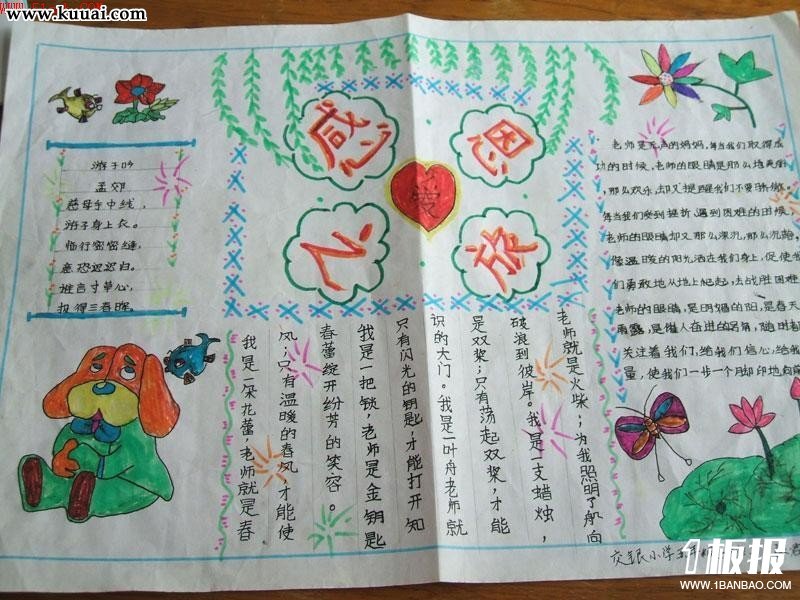 www.kuuai.com
游子吟
孟郊
慈母手中线，
游子身上衣。
临行密密缝，
意恐迟迟归。
谁言寸草心，
报得三春晖。
感恩
愛
欣
老师是无声的妈妈，每当我们取得成
功的时候，老师的眼睛是那么地美丽
那么欢乐，却又提醒我们不要骄傲。
每当我们受到挫折，遇到困难的时候，
老师的眼睛却又那么深沉，那么沉静。
像温暖的阳光洒在我们身上，促使我
们勇敢地从地上爬起，去战胜困难
老师的眼睛，是明媚的阳，是春天
雨露，是催人奋进的号角，随时都
关注着我们，给我们信心，给我们
量，使我们一步一个脚印地向前
我是一朵花蕾，老师就是春
风；只有温暖的春风，才能使
春蕾绽开纷芳的笑容。
我是一把锁，老师是金钥匙
只有闪光的钥匙，才能打开知
识的大门。我是一叶舟老师就
是双桨；只有荡起双桨，才能
破浪到彼岸。我是一支蜡烛，
老师就是火柴；为我照明了航向
交银小学
1板报
WWW.1BANBAO.COM